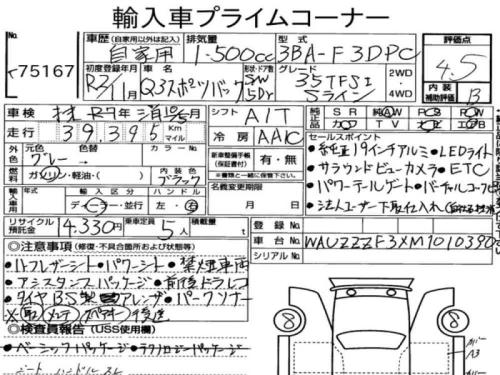 輸入車プライムコーナー
No. 75167
車歴 (自家用以外は記入) 自家用
排気量 1,500cc
型式 3BA-F3DPC
評価点 4.5
内装補助評価 B
初度登録年月 R2/11月
車名 Q3スポーツバック
形・ドア数 SW 5Dr
グレード 35TFSI Sライン
2WD・4WD
車検 R7年
走行 39,395 Km マイル
シフト A/T
冷房 AAC
純正品 SR AW PS PW
カワ TV
外元色 グレー
色替
カラー No.
燃料 ガソリン・軽油・( )
内装色 ブラック
新車整備手帳(保証書付) 有・無
※書類と一緒に保管して下さい。
輸入車用 輸入区分 ディーラー・並行
ハンドル 左・右
名義変更期限
月 日
リサイクル預託金 14,330円
乗車定員 5人
積載量 t
登録 No.
車台 No. WAUZZZF3XM1010390
シリアル No.
セールスポイント
・純正19インチアルミ・LEDライト
・サラウンドビューカメラ・ETC
・パワーテールゲート・バーチャルコクピット
・法人ユーザー下取仕入れ
◎注意事項 (修復・不具合箇所および状態等)
・ハーフレザーシート・パワーシート・禁煙車両
・アシスタンスパッケージ・前後ドラレコ
・タイヤBS製 アレンザ・パークソナー
※ 取 メンテ スペアキー 後送
◎検査員報告 (USS使用欄)
・ベーシックパッケージ・テクノロジーパッケージ
シート ハンドル スレ